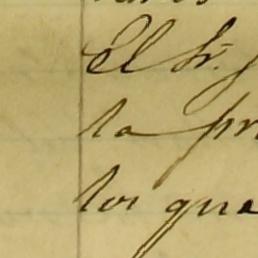 El Sr.
la pr
los qua